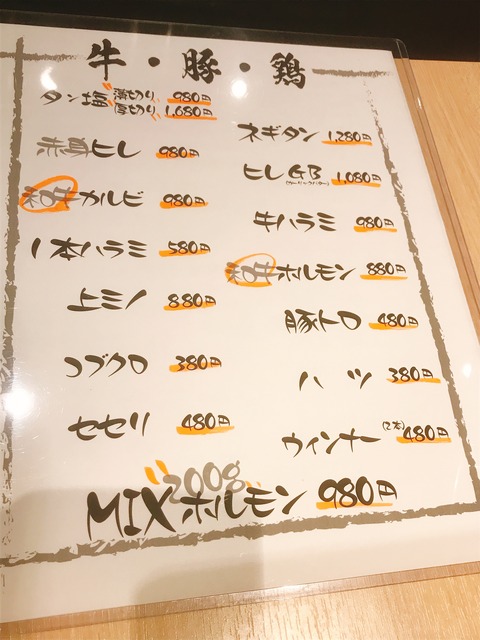 牛・豚・鶏
タン塩 薄切り 980円
厚切り 1,680円
赤身ヒレ 980円
和牛カルビ 980円
1本ハラミ 580円
上ミノ 880円
コブクロ 380円
セセリ 480円
ネギタン 1,280円
ヒレGB 1,080円
(ガーリックバター)
牛ハラミ 980円
和牛ホルモン 880円
豚トロ 480円
ハツ 380円
ウィンナー (2本) 480円
200g
MIXホルモン 980円